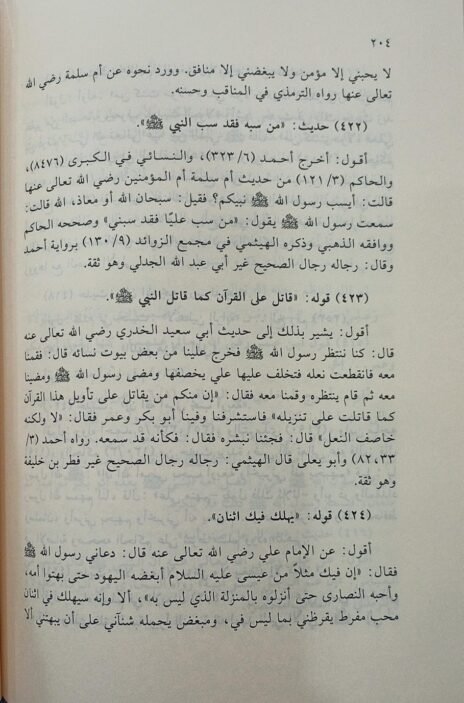 ٢٠٤
لا يحبني إلا مؤمن ولا يبغضني إلا منافق. وورد نحوه عن أم سلمة رضي الله
تعالى عنها رواه الترمذي في المناقب وحسنه.
(٤٢٢) حديث: «من سبه فقد سب النبي ﷺ».
أقول: أخرج أحمد (٦/ ٣٢٣)، والنسائي في الكبرى (٨٤٧٦)،
والحاكم (٣/ ١٢١) من حديث أم سلمة أم المؤمنين رضي الله تعالى عنها
قالت: أيسب رسول الله ﷺ نبيكم؟ فقيل: سبحان الله أو معاذ، الله قالت:
سمعت رسول الله ﷺ يقول: «من سب عليًا فقد سبني» وصححه الحاكم
ووافقه الذهبي وذكره الهيثمي في مجمع الزوائد (٩/ ١٣٠) برواية أحمد
وقال: رجاله رجال الصحيح غير أبي عبد الله الجدلي وهو ثقة.
(٤٢٣) قوله: «قاتل على القرآن كما قاتل النبي ﷺ».
أقول: يشير بذلك إلى حديث أبي سعيد الخدري رضي الله تعالى عنه
قال: كنا ننتظر رسول الله ﷺ فخرج علينا من بعض بيوت نسائه قال: فقمنا
معه فانقطعت نعله فتخلف عليها علي يخصفها ومضى رسول الله ﷺ ومضينا
معه ثم قام ينتظره وقمنا معه فقال: «إن منكم من يقاتل على تأويل هذا القرآن
كما قاتلت على تنزيله» فاستشرفنا وفينا أبو بكر وعمر فقال: «لا ولكنه
خاصف النعل» قال: فجئنا نبشره فقال: فكأنه قد سمعه. رواه أحمد (٣/
٣٣، ٨٢) وأبو يعلى قال الهيثمي: رجاله رجال الصحيح غير فطر بن خليفة
وهو ثقة.
(٤٢٤) قوله: «يهلك فيك اثنان».
أقول: عن الإمام علي رضي الله تعالى عنه قال: دعاني رسول الله ﷺ
فقال: «إن فيك مثلاً من عيسى عليه السلام أبغضه اليهود حتى بهتوا أمه،
وأحبه النصارى حتى أنزلوه بالمنزلة الذي ليس به»، ألا وإنه سيهلك في اثنان
محب مفرط يقرظني بما ليس في، ومبغض يحمله شنآني على أن يبهتني ألا